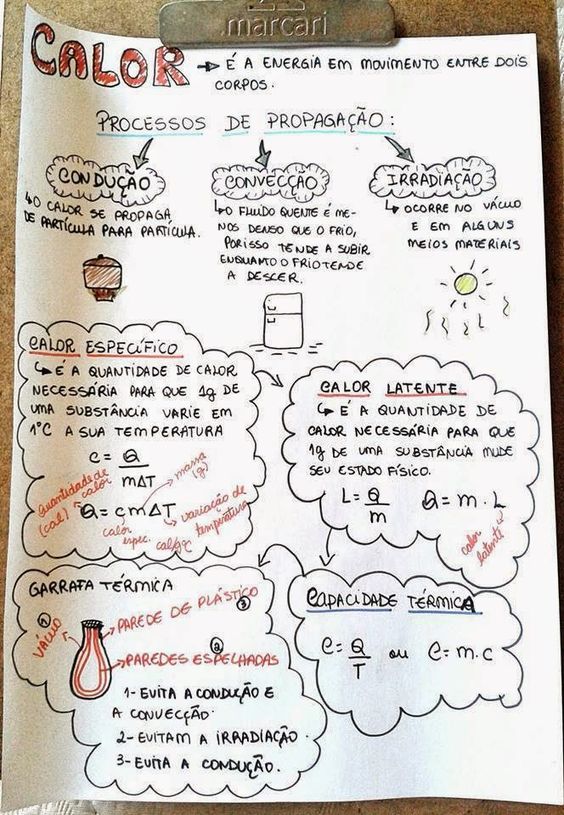 marcari
CALOR → É A ENERGIA EM MOVIMENTO ENTRE DOIS
CORPOS.
PROCESSOS DE PROPAGAÇÃO:
CONDUÇÃO
↳ O CALOR SE PROPAGA
DE PARTÍCULA PARA PARTÍCULA.
CONVECÇÃO
↳ O FLUIDO QUENTE É ME-
NOS DENSO QUE O FRIO,
POR ISSO TENDE A SUBIR
ENQUANTO O FRIO TENDE
A DESCER.
IRRADIAÇÃO
↳ OCORRE NO VÁCUO
E EM ALGUNS
MEIOS MATERIAIS
CALOR ESPECÍFICO
↳ É A QUANTIDADE DE CALOR
NECESSÁRIA PARA QUE 1g DE
UMA SUBSTÂNCIA VARIE EM
1°C A SUA TEMPERATURA
c = Q
mΔT
Quantidade de
calor
(cal)
massa
(g)
Q = cmΔT
variação de
temperatura
calor
espec.
cal/g°C
CALOR LATENTE
↳ É A QUANTIDADE DE
CALOR NECESSÁRIA PARA QUE
1g DE UMA SUBSTÂNCIA MUDE
SEU ESTADO FÍSICO.
L = Q
m
Q = m . L
calor
latente
GARRAFA TÉRMICA
① VÁCUO
PAREDE DE PLÁSTICO ③
②
PAREDES ESPELHADAS
1- EVITA A CONDUÇÃO E
A CONVECÇÃO.
2- EVITAM A IRRADIAÇÃO.
3- EVITA A CONDUÇÃO.
CAPACIDADE TÉRMICA
C = Q
T
ou C = m.c